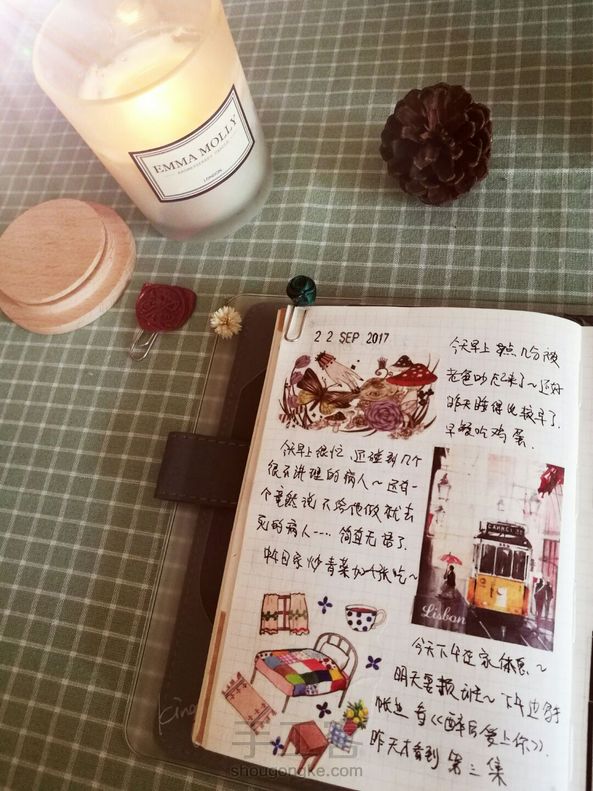 EMMA MOLLY
LONDON
22 SEP 2017
今天早上点几分被
老爸吵起来了~还好
昨天睡得比较早了.
早餐吃鸡蛋.
今天早上很忙,还碰到几个
很不讲理的病人~还有一
个竟然说不给他做就去
死的病人……简直无语了.
中午回家炒青菜加吃~
Lisbon
今天下午在家休息~
明天要报~下午边
帐边看《醉后爱上你》.
昨天才看到第三集
手工客
shougongke.com